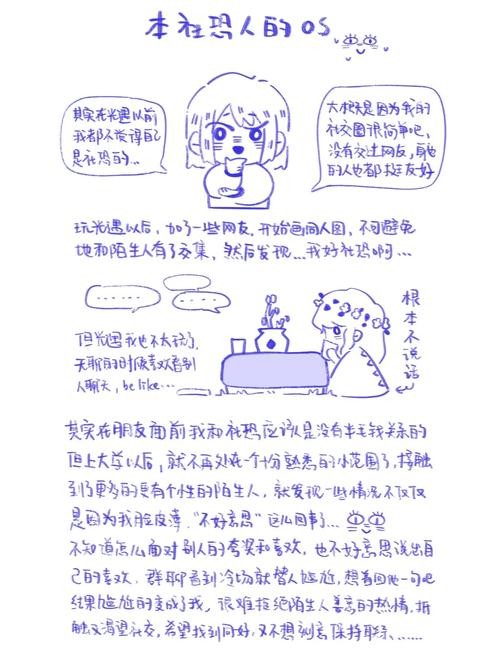 本社恐人的OS
其实在光遇以前
我都不觉得自己
是社恐的...
大概是因为我的
社交圈很简单吧，
没有交过网友，身边
的人也都挺友好
玩光遇以后，加了一些网友，开始画同人图，不可避免
地和陌生人有了交集，然后发现...我好社恐啊...
但光遇我也不太玩了，
无聊的时候喜欢看别
人聊天，be like...
根本不说话
其实在朋友面前我和社恐应该是没有半毛钱关系的
但上大学以后，就不再处在一个十分熟悉的小范围了，接触
到了更多的具有个性的陌生人，就发现一些情况不仅仅
是因为我脸皮薄，“不好意思”这么回事了...
不知道怎么面对别人的夸奖和喜欢，也不好意思说出自
己的喜欢，群聊看到冷场就替人尴尬，想着回他一句吧
结果尴尬的变成了我，很难拒绝陌生人善意的热情，抵
触又渴望社交，希望找到同好，又不想刻意保持联系......